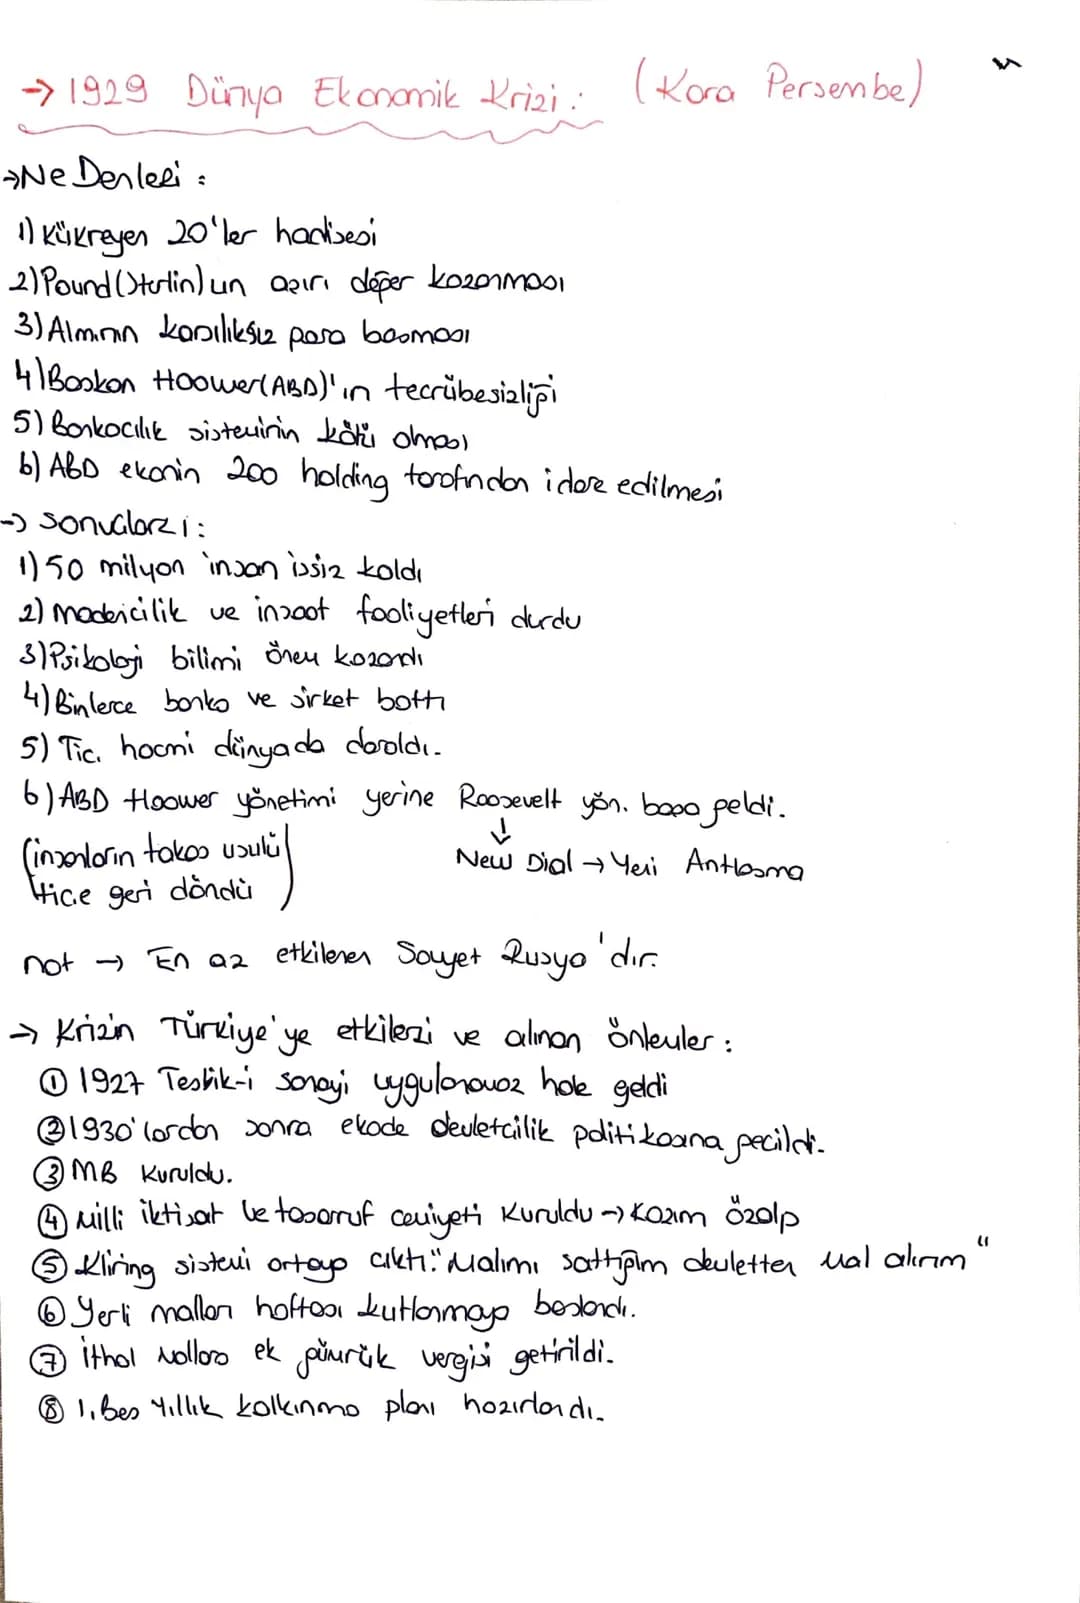 → 1929 Dünya Ekonomik Krizi : (Kara Perşembe)
→ Nedenleri :
1) Kükreyen 20'ler hadisesi
2) Pound (Sterlin)'un aşırı değer kazanması
3) Alm.nın karşılıksız para basması
4) Başkan Hoower (ABD)'ın tecrübesizliği
5) Bankacılık sisteminin kötü olması
6) ABD ekonin 200 holding tarafından idare edilmesi
→ Sonuçları :
1) 50 milyon insan işsiz kaldı
2) Madencilik ve inşaat faaliyetleri durdu
3) Psikoloji bilimi önem kazandı
4) Binlerce banka ve şirket battı
5) Tic. hacmi dünyada daraldı.
6) ABD Hoower yönetimi yerine Roosevelt yön. başa geldi.
(insanların takas usulü tice geri döndü)
↓
New Dial → Yeni Antlaşma
not → En az etkilenen Sovyet Rusya'dır.
→ Krizin Türkiye'ye etkileri ve alınan önlemler :
① 1927 Teşvik-i sanayi uygulanamaz hale geldi
② 1930'lardan sonra ekode devletçilik politikasına geçildi.
③ MB Kuruldu.
④ Milli iktisat ve tasarruf cemiyeti Kuruldu → Kazım Özalp
⑤ Kliring sistemi ortaya çıktı. "Malımı sattığım devletten mal alırım"
⑥ Yerli malları haftası kutlanmaya başlandı.
⑦ İthal Mallara ek gümrük vergisi getirildi.
⑧ 1. Beş Yıllık kalkınma planı hazırlandı.